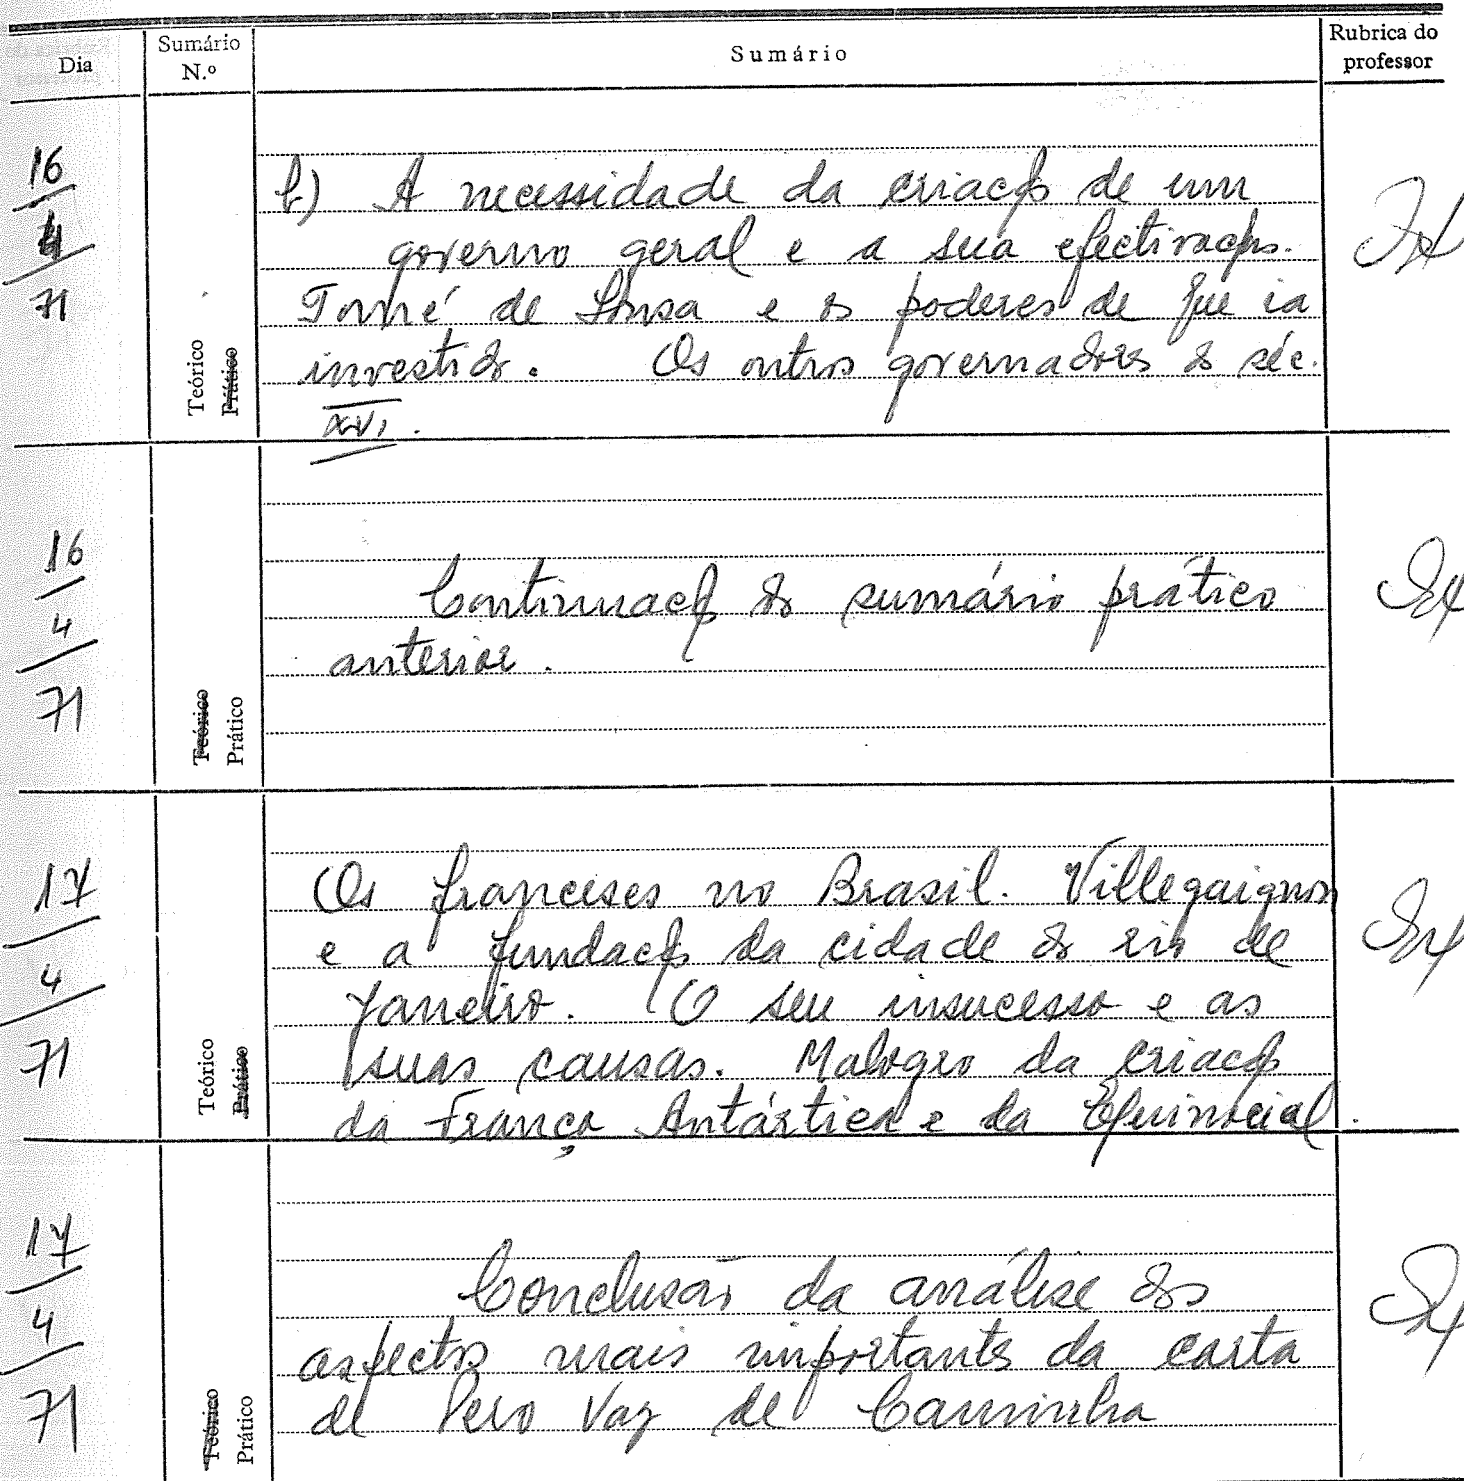 Dia
Sumário
N.º
Sumário
Rubrica do
professor
16
4
71
Teórico
Prático
b) A necessidade da criação de um
governo geral e a sua efectivação.
Tomé de Sousa e os poderes de que ia
investido. Os outros governadores do séc.
XVI.
16
4
71
Teórico
Prático
Continuação do sumário prático
anterior.
17
4
71
Teórico
Prático
Os franceses no Brasil. Villegaignon
e a fundação da cidade do rio de
Janeiro. O seu insucesso e as
suas causas. Malogro da criação
da França Antártica e da Equinocial.
17
4
71
Teórico
Prático
Conclusão da análise dos
aspectos mais importantes da carta
de Pero Vaz de Caminha